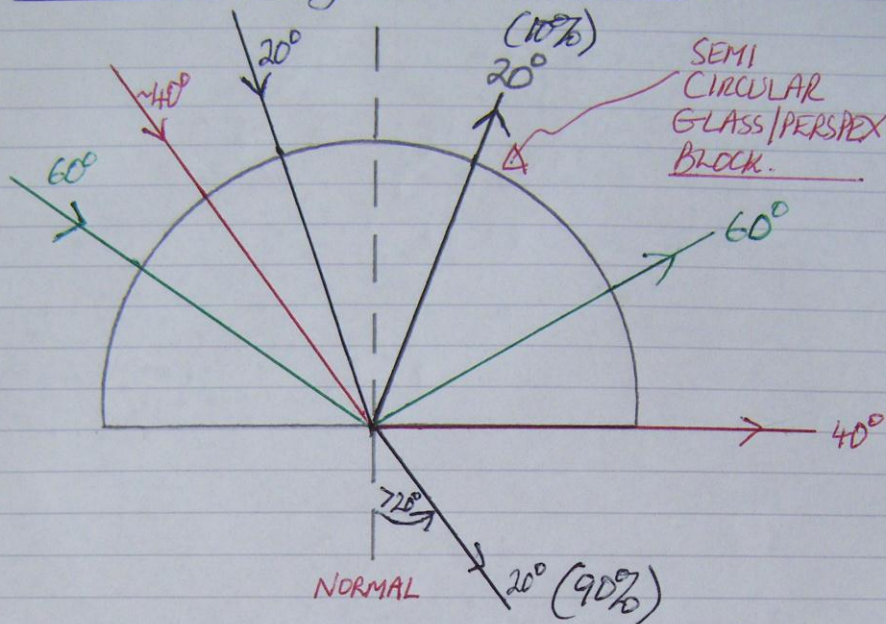 (10%)
20°
20°
SEMI
CIRCULAR
GLASS/PERSPEX
BLOCK.
~40°
60°
60°
40°
>20°
20° (90%)
NORMAL